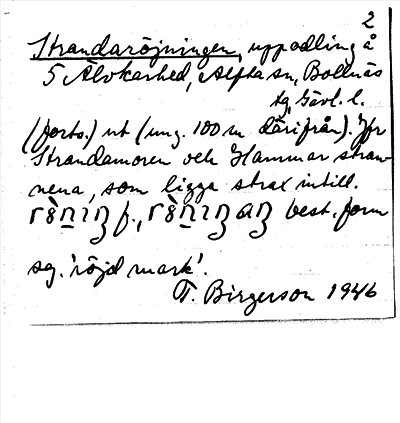 2
Strandaröjningen, uppodling å
5 Älvkarhed, Alfta sn, Bollnäs
tg, Gävl. l.
(forts.) ut (ung. 100 m därifrån). Jfr
Strandamoren och Hammarstran-
nena, som ligga strax intill.
best. form
sg. 'röjd mark'.
T. Birgerson 1946